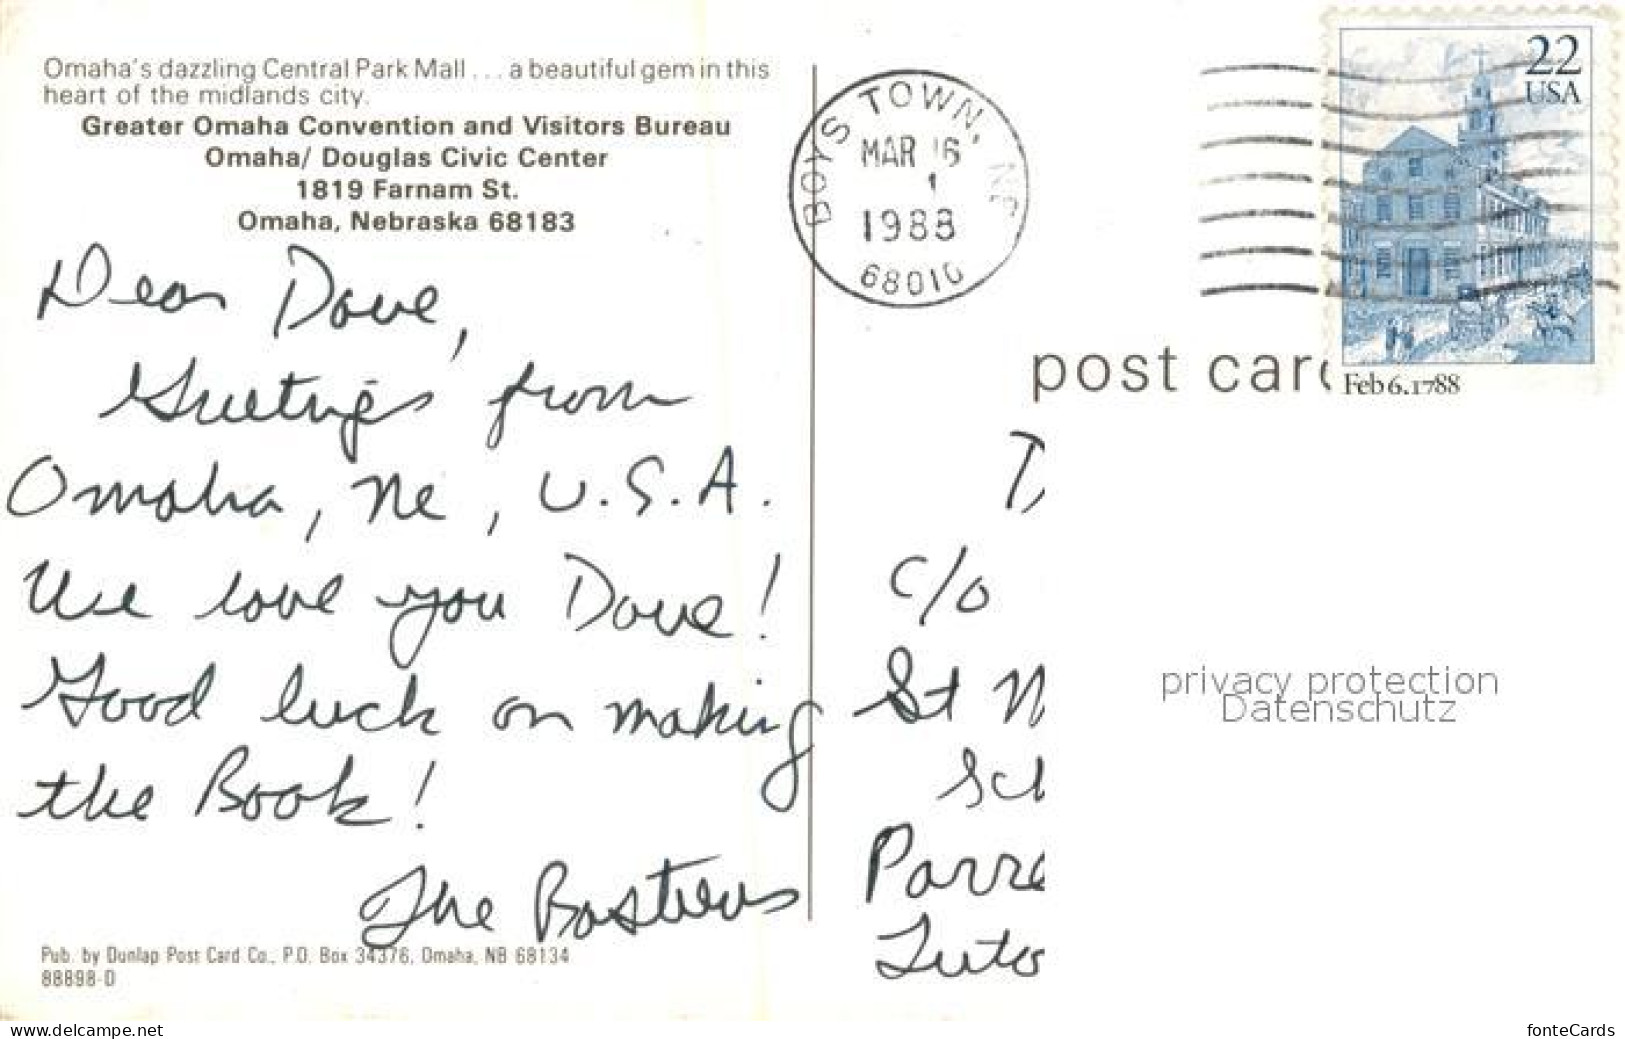 Omaha's dazzling Central Park Mall . . . a beautiful gem in this
heart of the midlands city.
Greater Omaha Convention and Visitors Bureau
Omaha/ Douglas Civic Center
1819 Farnam St.
Omaha, Nebraska 68183
Dear Dave,
Greetings from
Omaha, Ne, U.S.A.
We love you Dave!
Good luck on making
the Book!
The Bastiens
Pub. by Dunlap Post Card Co., P.O. Box 34376, Omaha, NB 68134
88898-D
BOYS TOWN, NE
MAR 16
1988
68010
22
USA
Feb 6, 1788
post car
T
c/o
St
Sch
Parr
Luto
privacy protection
Datenschutz
www.delcampe.net
fonteCards